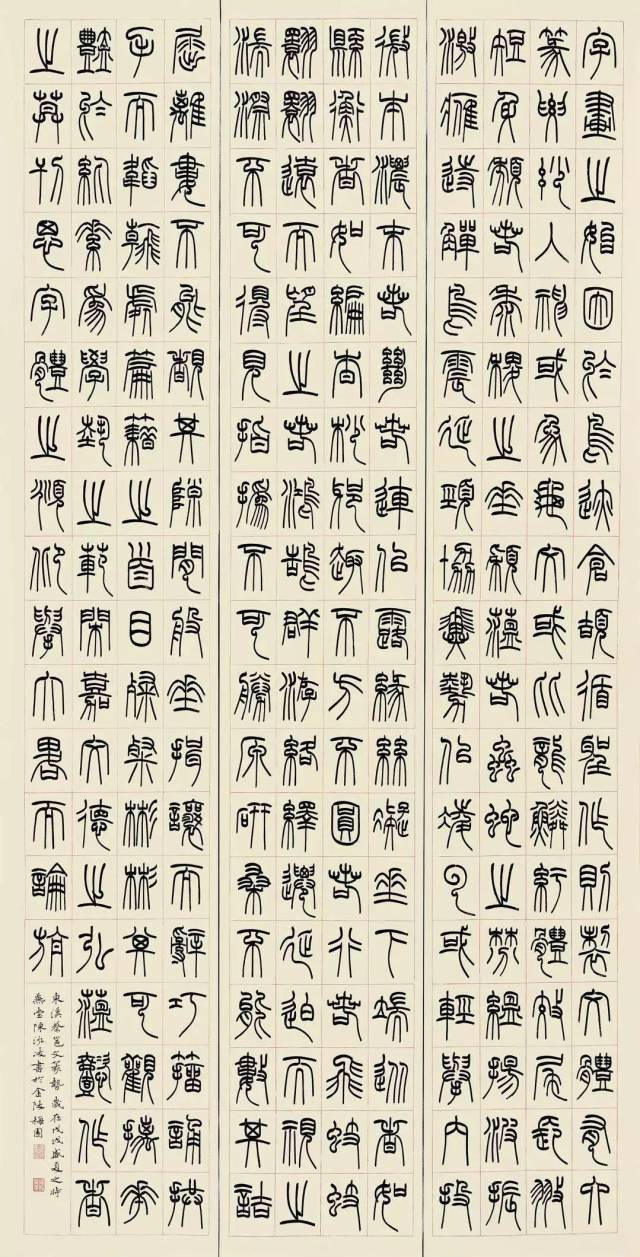 字畫之始因於鳥迹倉頡循聖作則製文體有六
篆要妙入神或象龜文或比龍鱗紓體放尾長翅
短身頹若黍稷之垂穎蘊若蟲蛇之棼縕揚波振
激鷹跱鳥震延頸協翼勢似凌雲或輕舉內投
微本濃末若絕若連似露緣絲凝垂下端從者如
縣衡者如編杳杪邪趣不方不圓若行若飛蚑蚑
翾翾遠而望之若鴻鵠群游絡繹遷延迫而視之
湍漈不可得見指撝不可勝原研桑不能數其詰
屈離婁不能覩其隙間般倕揖讓而辭巧籀誦拱
手而韜翰處篇籍之首目粲粲彬彬其可觀摛華
豔於紈素為學藝之範閑嘉文德之弘蘊懿作者
之莫刊思字體之頫仰舉大略而論旃
東漢蔡邕文篆勢歲在戊戌盛夏之時
堂陳書於金陵梅園